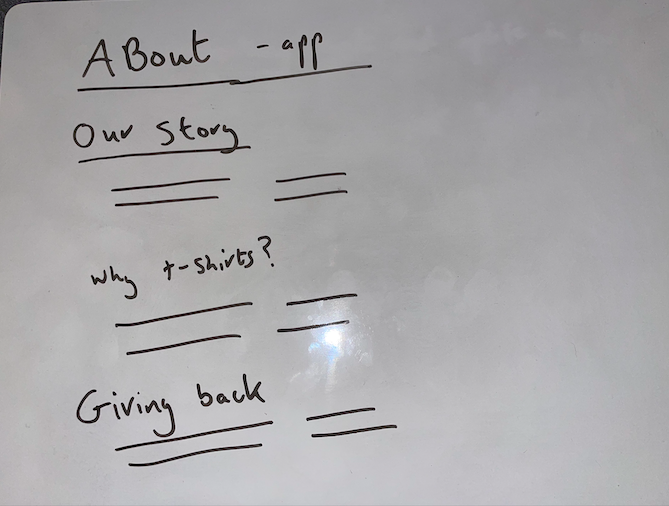 ABout - app
Our Story
Why t-shirts?
Giving back